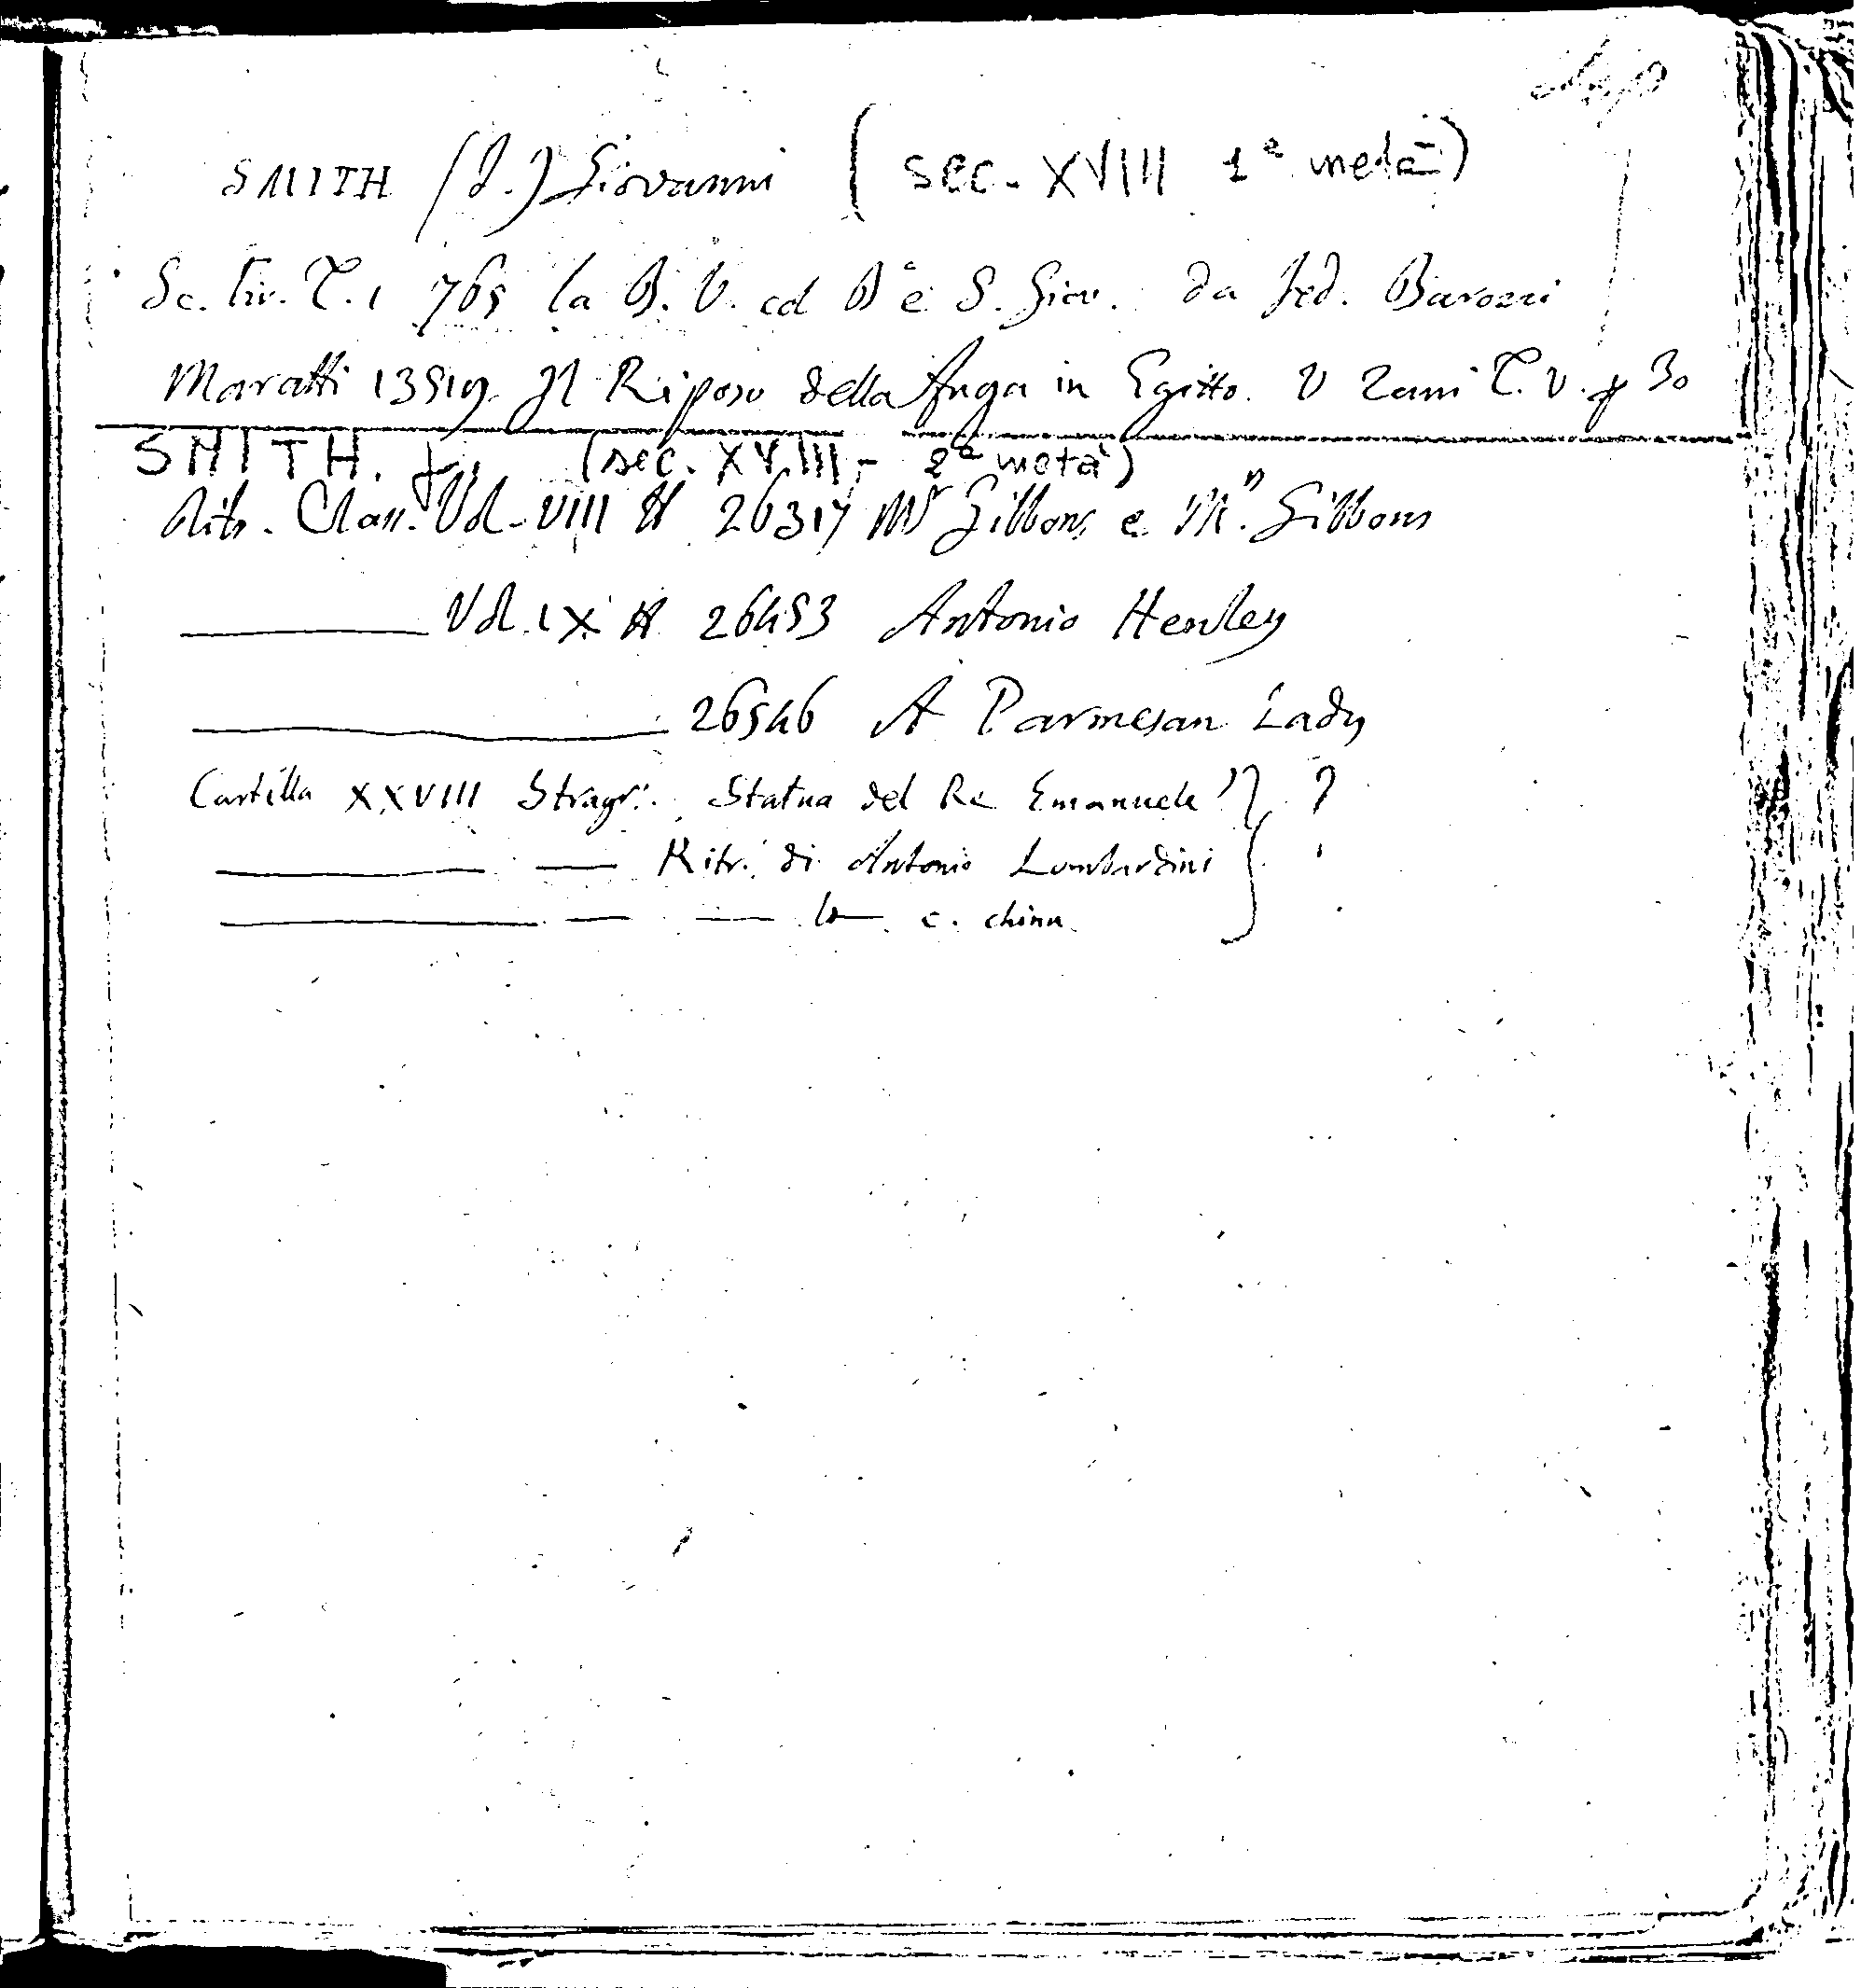 SMITH (J.) Giovanni ( sec. XVIII 1ª metà)
Sc. Tir. T. 1 765 la B. V. col Bº e S. Giov. da Fed. Barozzi
Maratti 13519. Il Riposo della fuga in Egitto. V Zani T. V. p 30
SMITH. J. (sec. XVIII - 2ª metà)
Ritr. Class. Vol. VIII N 26317 Mr Gibbons e Mrs. Gibbons
Vol. IX N 26453 Antonio Henley
26546 A Parmesan Lady
Cartilla XXVIII Stragr. Statua del Re Emanuele ?
Ritr. di Antonio Lombardini
c. china